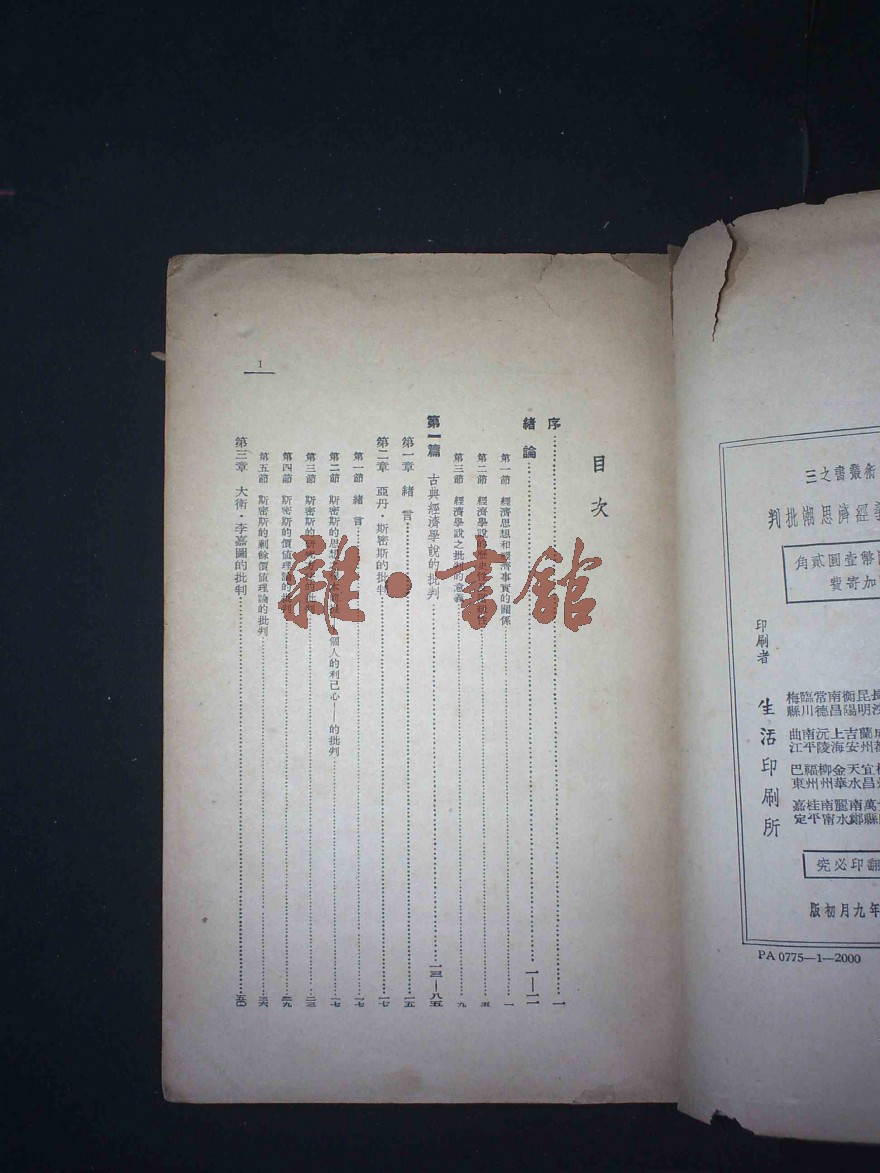 目次
序 一
緒論 一—一二
第一節 經濟思想和經濟事實的關係 一
第二節 經濟學說的歷史性 五
第三節 經濟學說之批判的意義 九
第一篇 古典經濟學說的批判 一三—八五
第一章 緒言 一五
第二章 亞丹·斯密斯的批判 一七
第一節 緒言 一七
第二節 斯密斯的思想 個人的利己心——的批判 一七
第三節 斯密斯的研究方法的批判 二三
第四節 斯密斯的價值理論的批判 二九
第五節 斯密斯的剩餘價值理論的批判 三六
第三章 大衛·李嘉圖的批判 五〇
1
雜·書舘
術叢書之三
經濟思潮批判
幣壹圓貳角
加寄費
印刷者
生活印刷所
梅臨常南衡昆長
縣川德昌陽明沙
曲南沅上吉蘭成
江平陵海安州都
巴福柳金天宜桂
東州州華水昌
嘉桂南麗南萬
定平南水鄭縣
翻印必究
年九月初版
PA 0775—1—2000